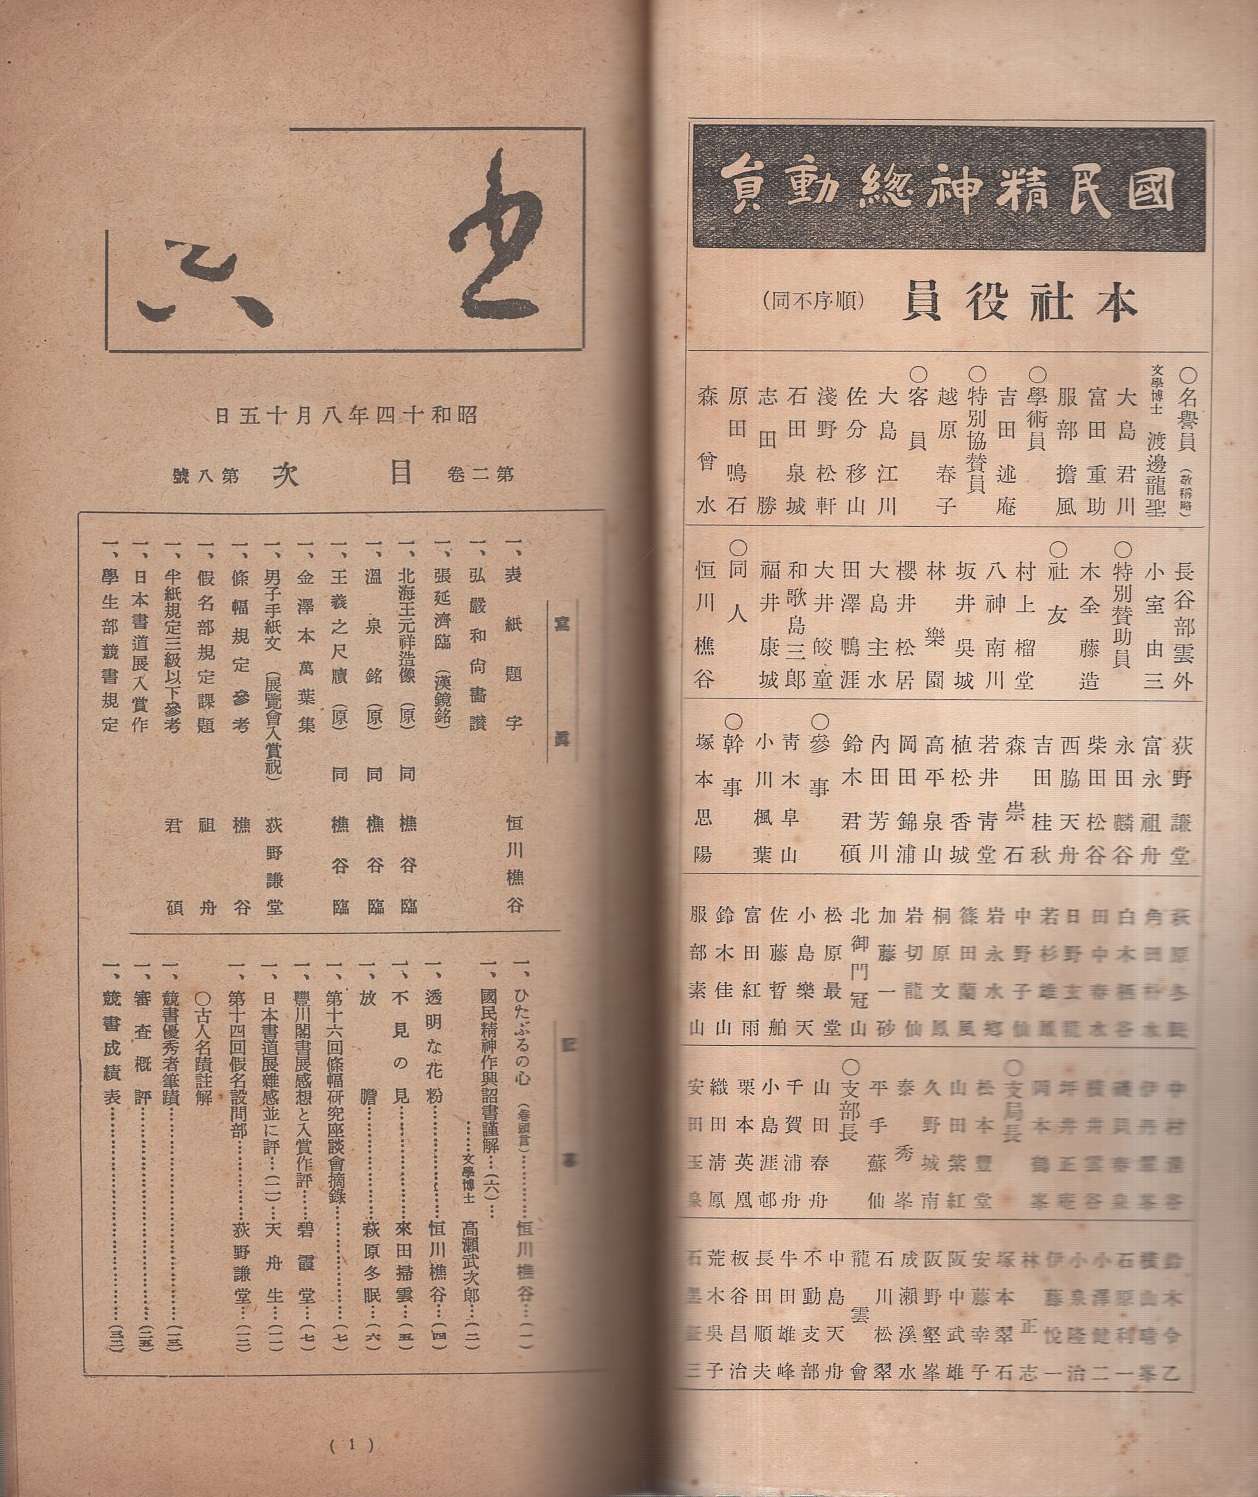 國民精神總動員
本社役員 (順序不同)
○名譽員 (敬稱略)
文學博士 渡邊龍聖
大島君川
富田重助
服部擔風
○學術員
吉田逑庵
○特別協贊員
越原春子
○客員
大島江川
佐分移山
淺野松軒
石田泉城
志田勝
原田鳴石
森曾水
長谷部雲外
小室由三
○特別贊助員
木全藤造
○社友
村上榴堂
八神南川
坂井吳城
林樂園
櫻井松居
大島主水
田澤鴨涯
大井皎童
和歌島三郎
福井康城
○同人
恒川樵谷
荻野謙堂
富永祖舟
永田麟谷
柴田松谷
西脇天舟
吉田桂秋
森崇石
若井靑堂
植松香城
高平泉山
岡田錦浦
內田芳川
鈴木君碩
○參事
靑木阜山
小川楓葉
○幹事
塚本思陽
萩原冬眠
白木栖谷
田中春水
日野玄龍
若杉雄鳳
中野子仙
岩永水鄕
篠田蘭風
桐原文鳳
岩切龍仙
加藤一砂
北御門冠山
松原最堂
小島樂天
佐藤哲舶
富田紅雨
鈴木佳山
服部素山
中村蓮谷
伊丹翠峯
磯貝春泉
橫井雲谷
坪井正庵
岡本鶴峯
○支局長
松本豐堂
山田紫紅
久野城南
泰秀峯
平手蘇仙
○支部長
山田春舟
千賀浦舟
小島涯邨
栗本英凰
織田淸鳳
安田玉泉
鈴木令乙
橫山晴峯
石原利一
小澤健二
小泉隆治
伊藤悅一
林正志
塚本翠石
安藤幸子
阪中武雄
阪野壑峯
成瀨溪水
石川松翠
龍雲會
中島天舟
不動支部
牛田雄峰
長田順夫
板谷昌治
荒木吳子
石黑証三
昭和十四年八月十五日
第二卷 目次 第八號
寫眞
一、表紙題字 恒川樵谷
一、弘嚴和尙書讃
一、張延濟臨(漢鏡銘)
一、北海王元祥造像(原) 同 樵谷臨
一、溫泉銘(原) 同 樵谷臨
一、王羲之尺牘(原) 同 樵谷臨
一、金澤本萬葉集
一、男子手紙文(展覽會入賞祝) 荻野謙堂
一、條幅規定參考 樵谷
一、假名部規定課題 祖舟
一、半紙規定三級以下參考 君碩
一、日本書道展入賞作
一、學生部競書規定
記事
一、ひたぶるの心(卷頭言)…………恒川樵谷…(一)
一、國民精神作興詔書謹解…(六)…
………文學博士 高瀨武次郎…(二)
一、透明な花粉…………恒川樵谷…(四)
一、不見の見…………來田掃雲…(五)
一、放膽…………萩原冬眠…(六)
一、第十六回條幅硏究座談會摘錄…………(七)
一、豐川閣書展感想と入賞作評……碧霞堂…(七)
一、日本書道展雜感並に評…(二)…天舟生…(一一)
一、第十四回假名設問部……荻野謙堂…(一三)
○古人名蹟註解
一、競書優秀者筆蹟…………(一三)
一、審査槪評…………(二五)
一、競書成績表…………(三三)
( 1 )